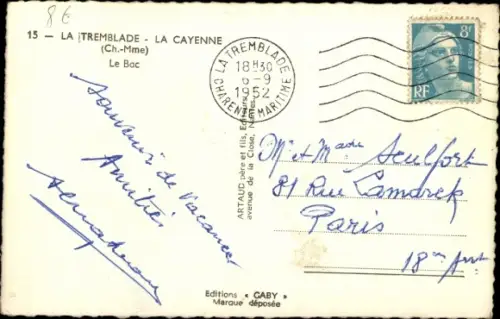 8 €
15 — LA TREMBLADE - LA CAYENNE
(Ch.-Mme)
Le Bac
LA TREMBLADE
18H30
6-9
1952
CHARENTE MARITIME
8F
RF
Souvenir de Vacances
Amitiés
ARTAUD père et fils, Editeurs
avenue de la Close, Nantes
M. et Made Seulfort
81 Rue Lamarck
Paris
18me Arrt
Editions « GABY »
Marque déposée